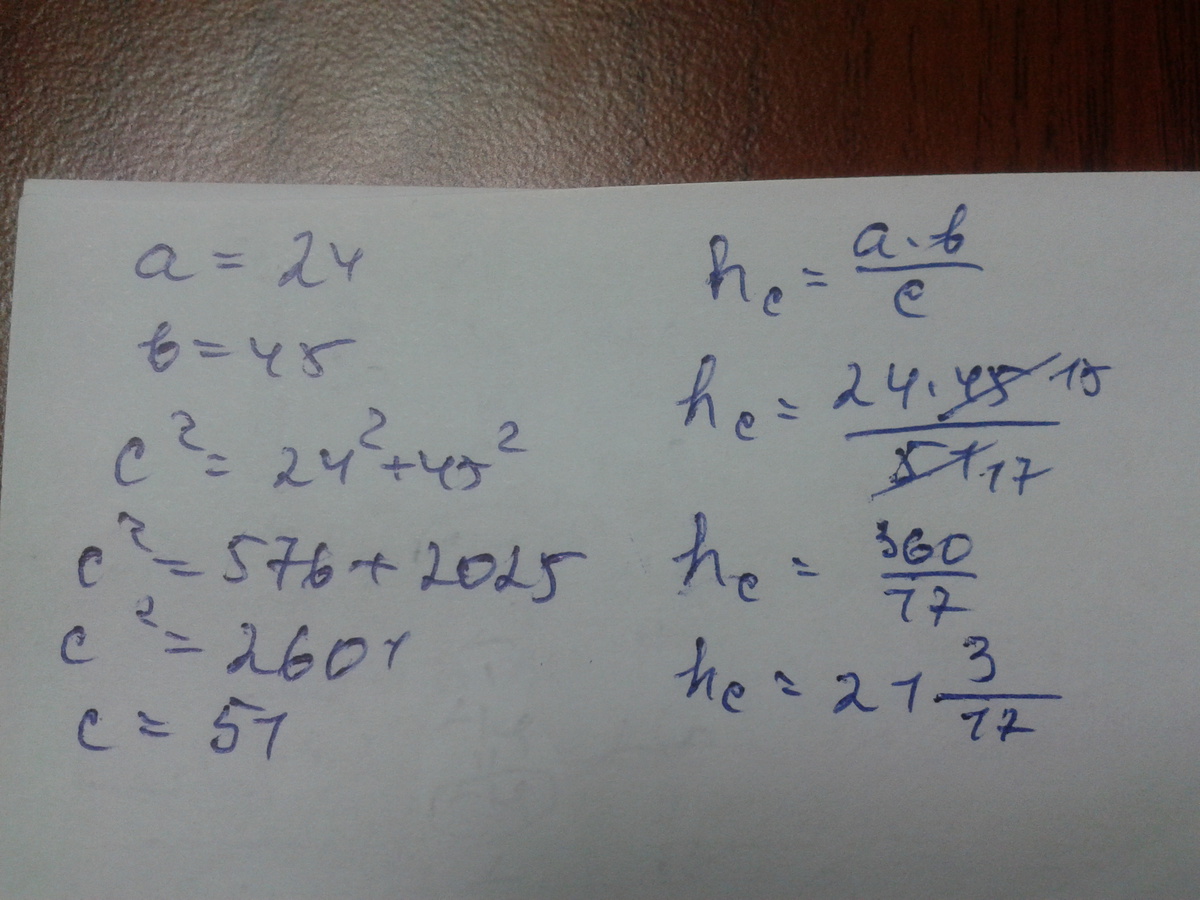 a = 24
в = 45
c² = 24² + 45²
c² = 576 + 2025
c² = 2601
c = 51
h_c = a · в / c
h_c = 24 · 45 15 / 51 17
h_c = 360 / 17
h_c = 21 3 / 17